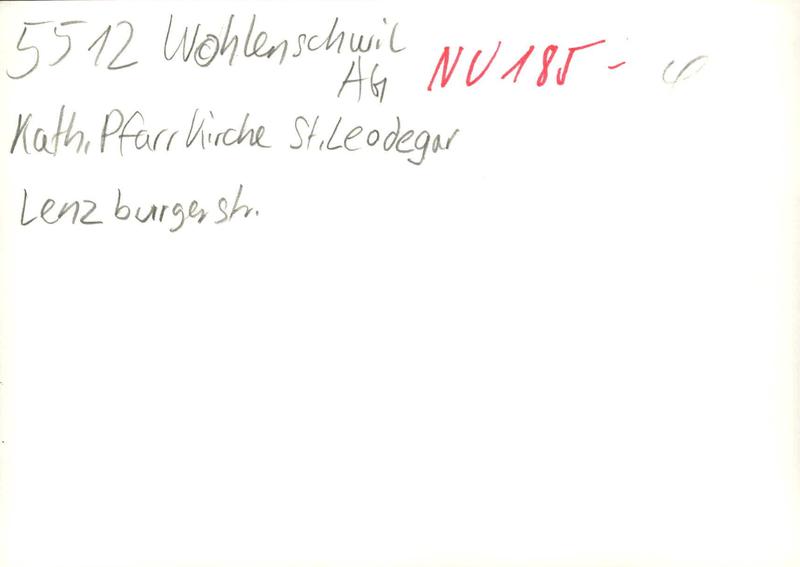 5512 Wohlenschwil
AG NU 185 -
Kath. Pfarrkirche St. Leodegar
Lenzburgerstr.